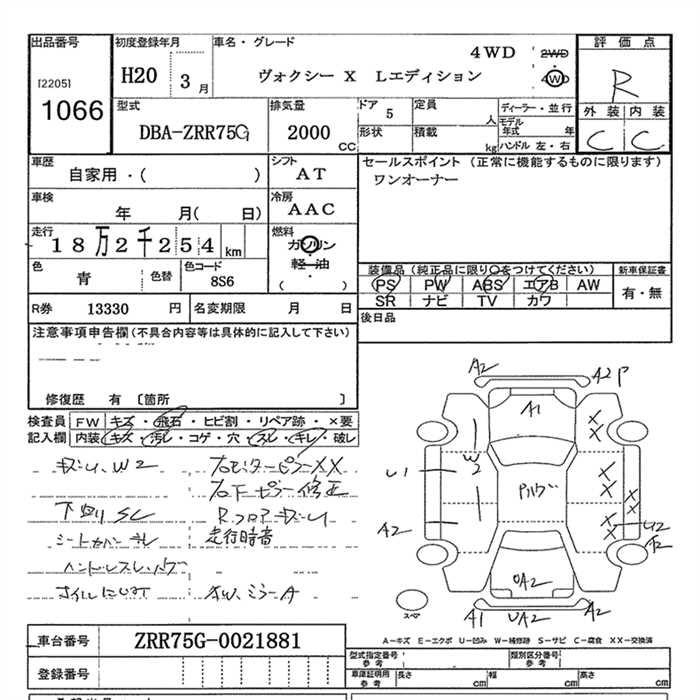 出品番号
[2205]
1066
初度登録年月
H20 3月
車名・グレード
ヴォクシー X Lエディション
4WD
2WD
4WD
評価点
R
外装 内装
C C
型式
DBA-ZRR75G
排気量
2000 CC
ドア 5
形状
定員 人
積載 kg
ディーラー・並行
モデル年式 年
ハンドル 左・右
車歴
自家用・( )
シフト
AT
セールスポイント(正常に機能するものに限ります)
ワンオーナー
車検
年 月( 日)
冷房
AAC
走行
18万2千254 km
燃料
ガソリン
軽・油
( )
色
青
色替
色コード
8S6
装備品(純正品に限り○をつけてください)
新車保証書
PS PW ABS エアB AW
SR ナビ TV カワ
有・無
R券 13330 円
名変期限 月 日
後日品
注意事項申告欄(不具合内容等は具体的に記入して下さい)
修復歴 有 〔箇所 〕
検査員記入欄
FW キズ・飛石・ヒビ割・リペア跡・×要
内装 キズ・汚レ・コゲ・穴・スレ・キレ・破レ
キズU、W2
右センターピラーXX
右下ピラー修正
下回りSC
RフロアキズU
シートカバーキレ
走行時音
AW、ミラーA
A2
A2 P
A1
W2
U1
A2
U2
A2
A1
UA2
A2
スペア
車台番号
ZRR75G-0021881
A-キズ E-エクボ U-凹み W-補修跡 S-サビ C-腐食 XX-交換済
登録番号
型式指定番号 参考
類別区分番号 参考
車庫証明用 参考
長さ cm
幅 cm
高さ cm